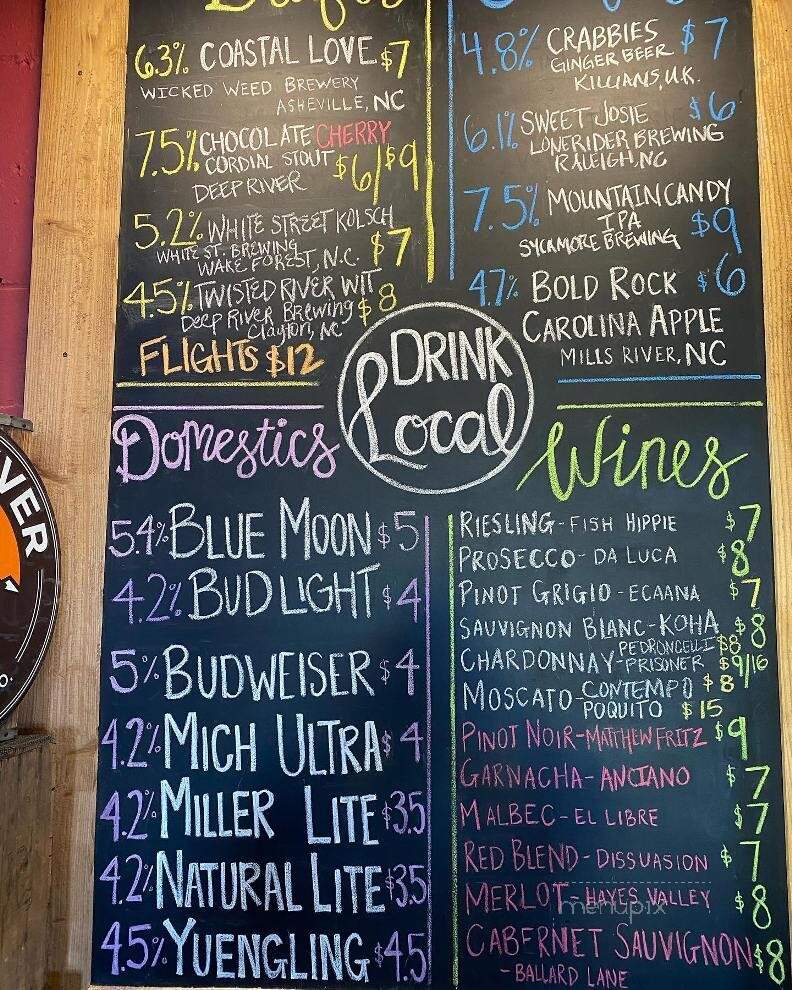 Drafts
6.3% COASTAL LOVE $7
WICKED WEED BREWERY
ASHEVILLE, NC
7.5% CHOCOLATE CHERRY
CORDIAL STOUT $6/$9
DEEP RIVER
5.2% WHITE STREET KOLSCH
WHITE ST. BREWING $7
WAKE FOREST, N.C.
4.5% TWISTED RIVER WIT
Deep River Brewing $8
Clayton, NC
FLIGHTS $12
4.8% CRABBIES $7
GINGER BEER
KILLIANS, U.K.
6.1% SWEET JOSIE $6
LONERIDER BREWING
RALEIGH, NC
7.5% MOUNTAIN CANDY
IPA $9
SYCAMORE BREWING
4.7% BOLD ROCK $6
CAROLINA APPLE
MILLS RIVER, NC
DRINK
Local
Domestics
5.4% BLUE MOON $5
4.2% BUD LIGHT $4
5% BUDWEISER $4
4.2% MICH ULTRA $4
4.2% MILLER LITE $3.5
4.2% NATURAL LITE $3.5
4.5% YUENGLING $4.5
Wines
RIESLING - FISH HIPPIE $7
PROSECCO - DA LUCA $8
PINOT GRIGIO - ECAANA $7
SAUVIGNON BLANC - KOHA $8
CHARDONNAY - PEDRONCELLI $8
PRISONER $9/16
MOSCATO - CONTEMPO $8
POQUITO $15
PINOT NOIR - MATTHEW FRITZ $9
GARNACHA - ANCIANO $7
MALBEC - EL LIBRE $7
RED BLEND - DISSUASION $7
MERLOT - HAYES VALLEY $8
CABERNET SAUVIGNON $8
- BALLARD LANE
VER
menupix